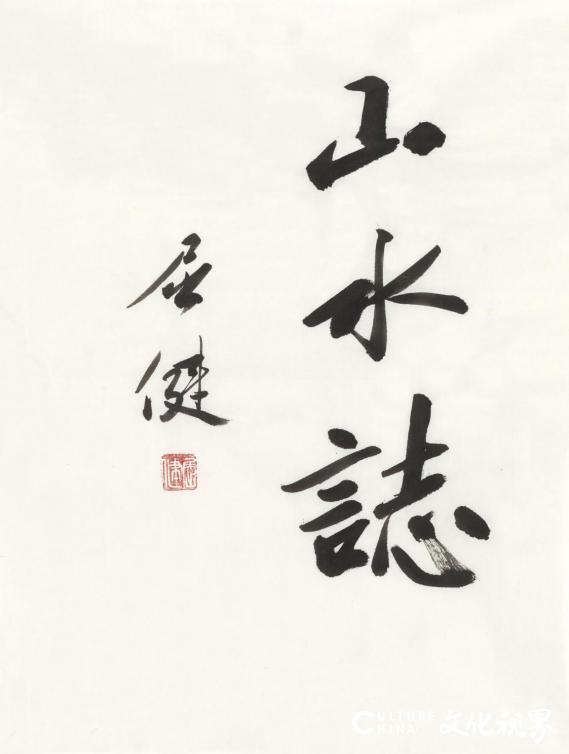 山水誌
屈健
屈健
CULTURE
CHINA 文化视界